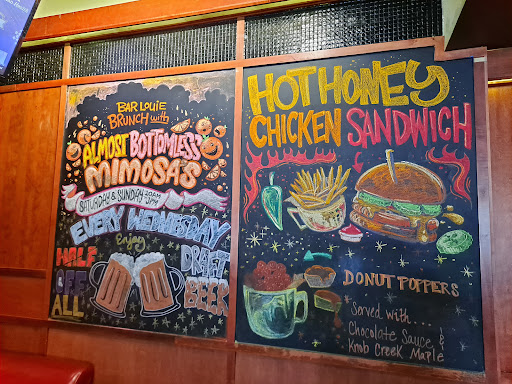 BAR LOUIE
BRUNCH with
ALMOST BOTTOMLESS
MIMOSA'S
SATURDAY & SUNDAY 10AM
EVERY WEDNESDAY
Enjoy
HALF
OFF
ALL
DRAFT
BEER
HOT HONEY
CHICKEN SANDWICH
DONUT POPPERS
Served with...
Chocolate Sauce, &
Knob Creek Maple